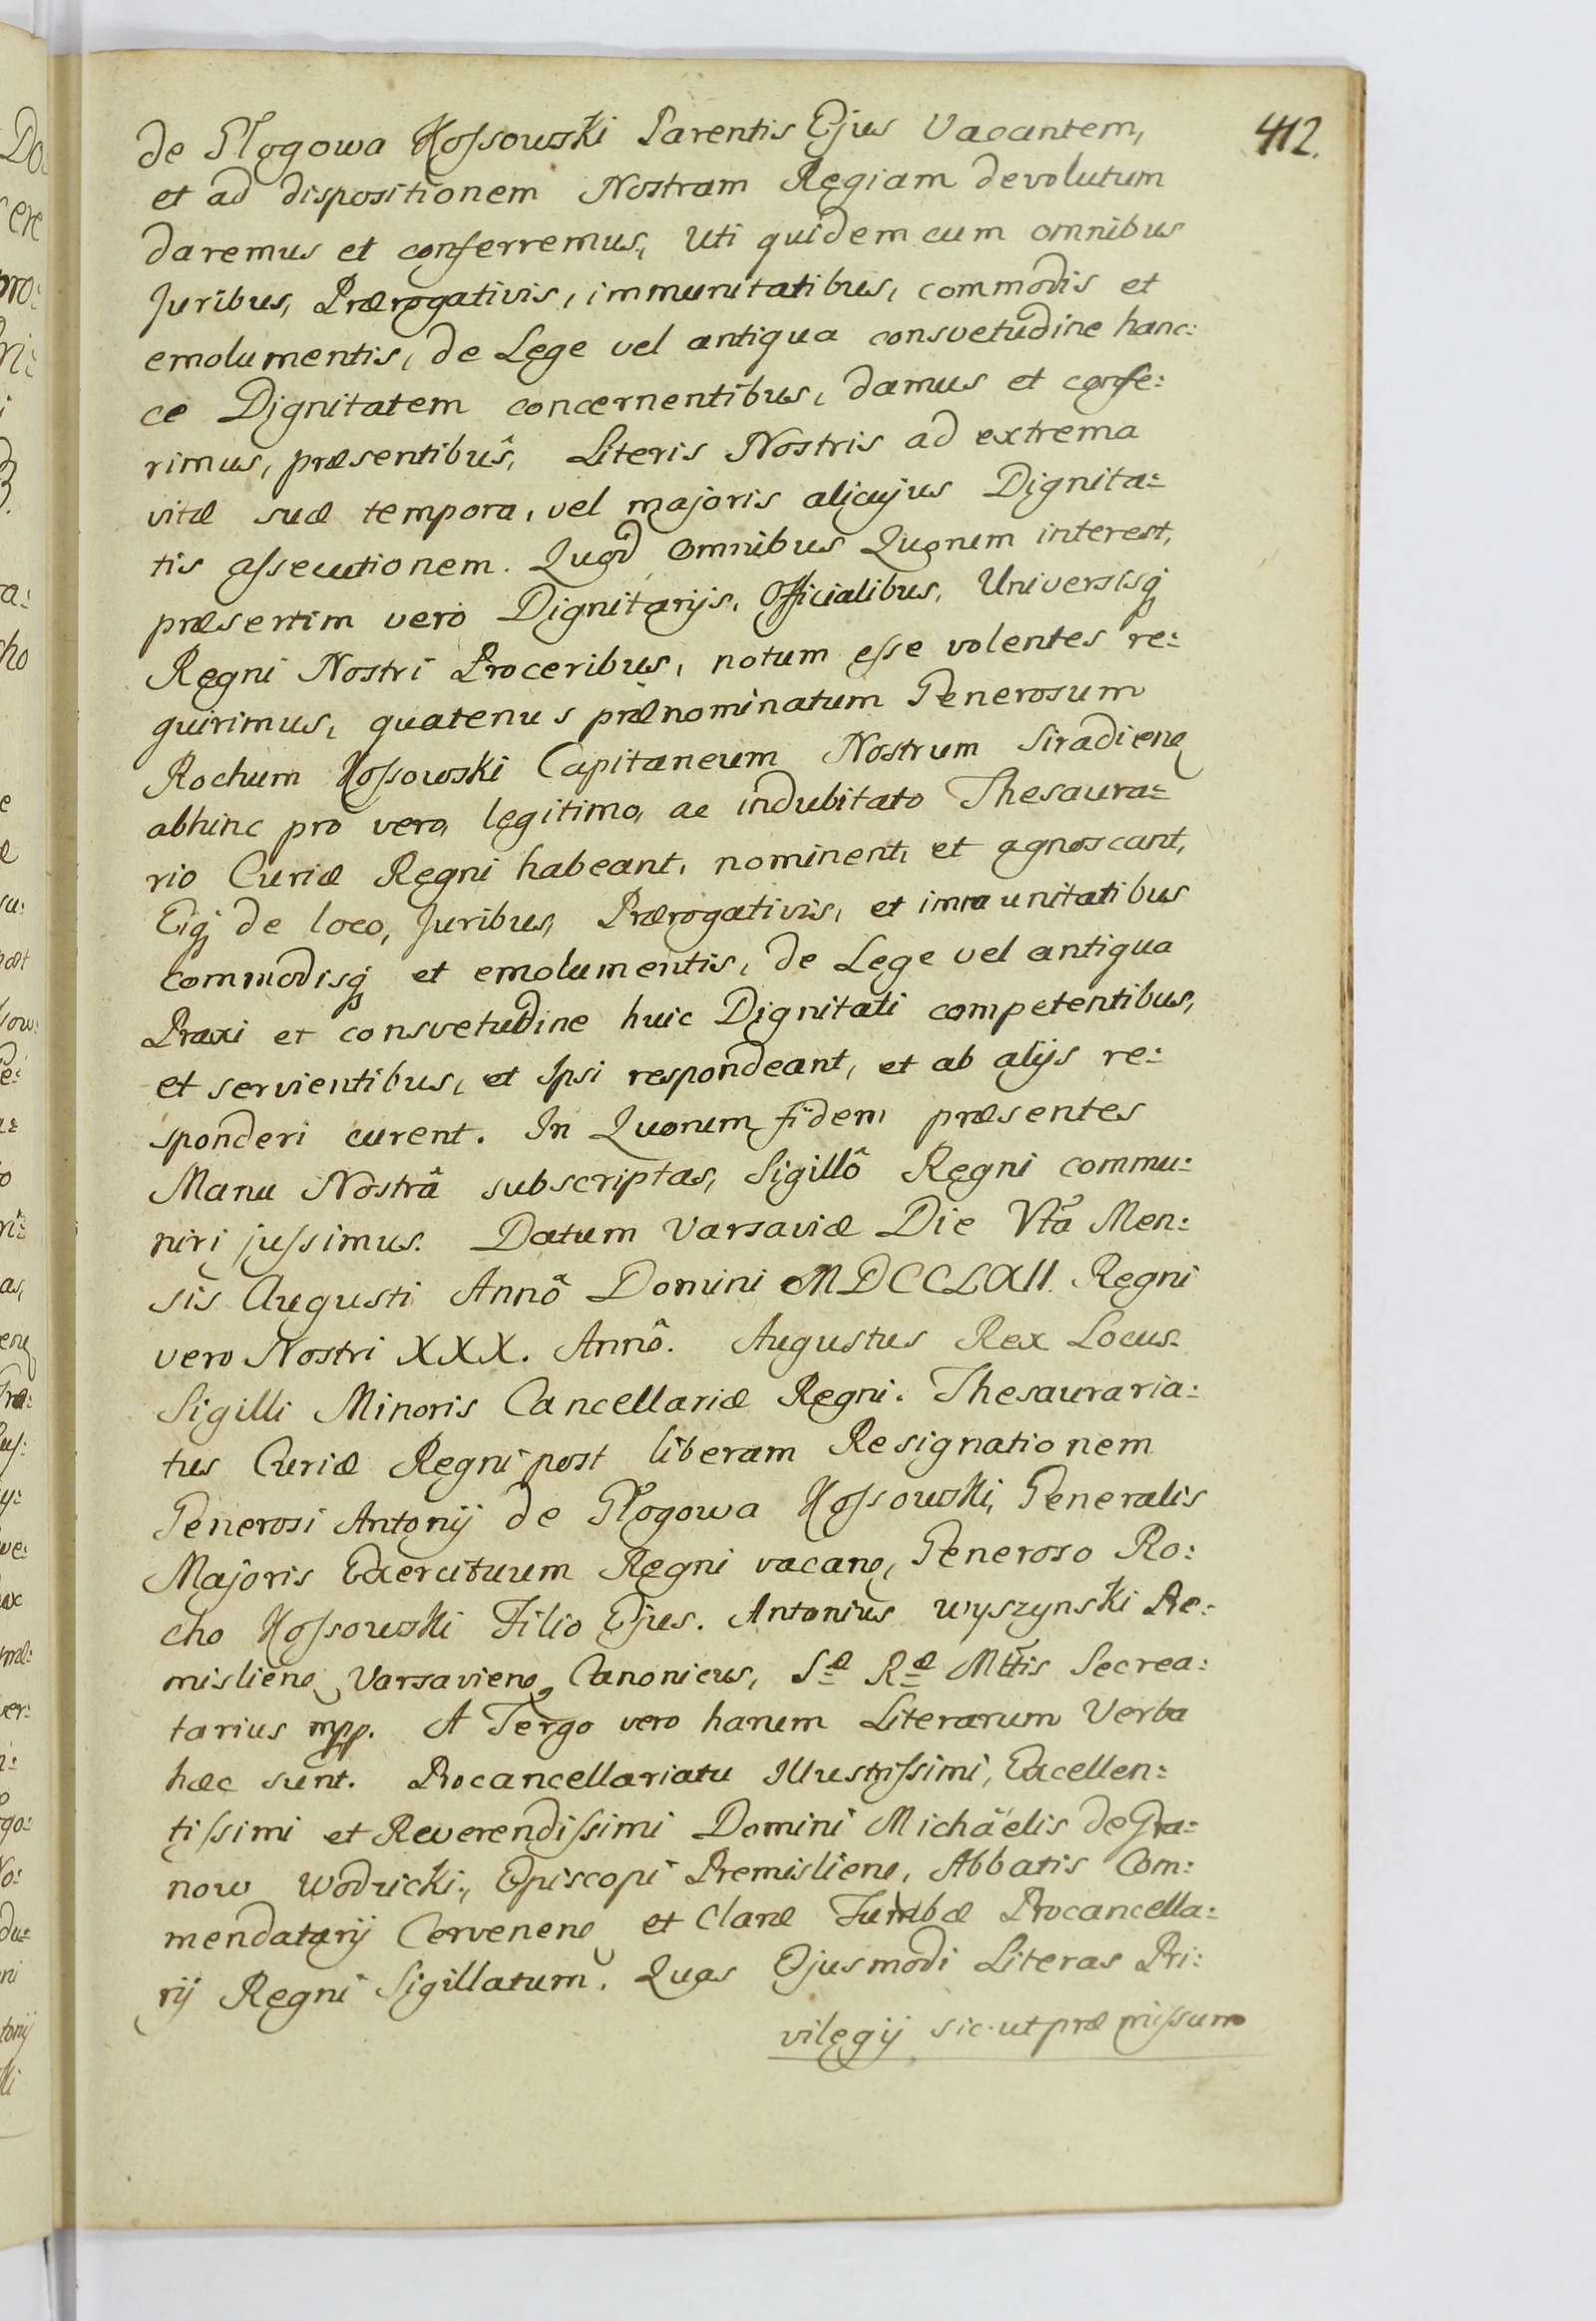 412.
de Głogowa Kossowski Parentis Ejus Vacantem,
et ad dispositionem Nostram Regiam devolutum
daremus et conferremus, Uti quidem cum omnibus
Juribus, Prærogativis, immunitatibus, commodis et
emolumentis, de Lege vel antiqua consvetudine hanc:
ce Dignitatem concernentibus, damus et confe:
rimus, præsentibus, Literis Nostris ad extrema
vitæ suæ tempora, vel majoris alicujus Dignita:
tis assecutionem. Quod omnibus Quorum interest,
præsertim vero Dignitarijs, Officialibus, Universisq
Regni Nostri Proceribus, notum esse volentes re:
quirimus, quatenus prænominatum Generosum
Rochum Kossowski Capitaneum Nostrum Siradienę
abhinc pro vero, legitimo, ac indubitato Thesaura:
rio Curiæ Regni habeant, nominent, et agnoscant,
Eiq de loco, Juribus, Prærogativis, et immunitatibus
commodisq et emolumentis, de Lege vel antiqua
Praxi et consvetudine huic Dignitati competentibus,
et servientibus, et Ipsi respondeant, et ab alijs re:
sponderi curent. In Quorum fidem præsentes
Manu Nostrâ subscriptas, Sigillô Regni commu:
niri jussimus. Datum Varsaviæ Die Vta Men:
sis Augusti Annô Domini MDCCLXII. Regni
vero Nostri XXX. Annô. Augustus Rex Locus
Sigilli Minoris Cancellariæ Regni. Thesauraria:
tus Curiæ Regni post liberam Resignationem
Generosi Antonij de Głogowa Kossowski, Generalis
Majoris Exercituum Regni vacanę, Generoso Ro:
cho Kossowski Filio Ejus. Antonius Wyszynski Pre:
mislienę Varsavienę Canonicus, Sæ Ræ Mttis Secrea:
tarius mpp. A Tergo vero harum Literarum Verba
hæc sunt. Procancellariatu Illustrissimi, Excellen:
tissimi et Reverendissimi Domini Michäelis de Gra:
now Wodzicki, Episcopi Premislienę, Abbatis Com:
mendatarij Cervenenę et Claræ Tumbæ Procancella:
rij Regni Sigillatum. Quas Ejusmodi Literas Pri:
vilegij sic ut præmissum